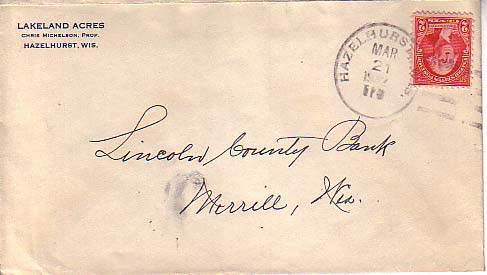 LAKELAND ACRES
CHRIS MICHELSON, PROP.
HAZELHURST, WIS.
HAZELHURST
MAR
21
Lincoln County Bank
Merrill, Wis.